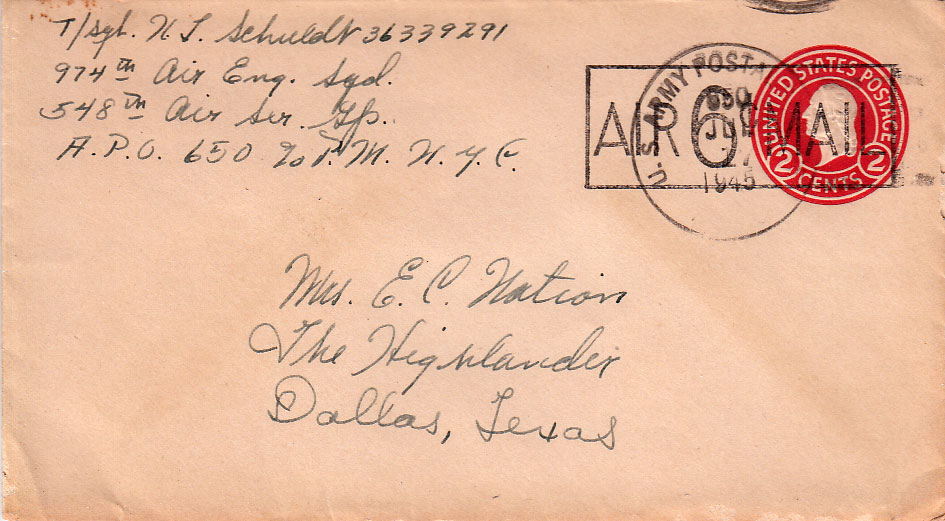 T/Sgt. H. J. Schuldt 36339291
974th Air Eng. Sqd.
548th Air Ser. Gp.
A.P.O. 650 c/o P.M. N.Y.C.
U.S. ARMY POSTAL
650
1945
AIR 6¢ MAIL
UNITED STATES POSTAGE
2 CENTS 2
Mrs. E. C. Nation
The Highlander
Dallas, Texas